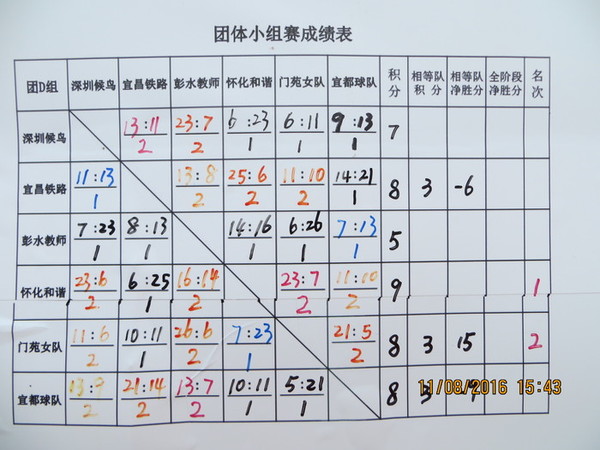 团体小组赛成绩表
团D组 深圳候鸟 宜昌铁路 彭水教师 怀化和谐 门苑女队 宜都球队 积分 相等队积分 相等队净胜分 全阶段净胜分 名次
深圳候鸟 13:11 2 23:7 2 6:23 1 6:11 1 9:13 1 7
宜昌铁路 11:13 1 13:8 2 25:6 2 11:10 2 14:21 1 8 3 -6
彭水教师 7:23 1 8:13 1 14:16 1 6:26 1 7:13 1 5
怀化和谐 23:6 2 6:25 1 16:14 2 23:7 2 11:10 2 9 1
门苑女队 11:6 2 10:11 1 26:6 2 7:23 1 21:5 2 8 3 15 2
宜都球队 13:9 2 21:14 2 13:7 2 10:11 1 5:21 1 8 3
11/08/2016 15:43